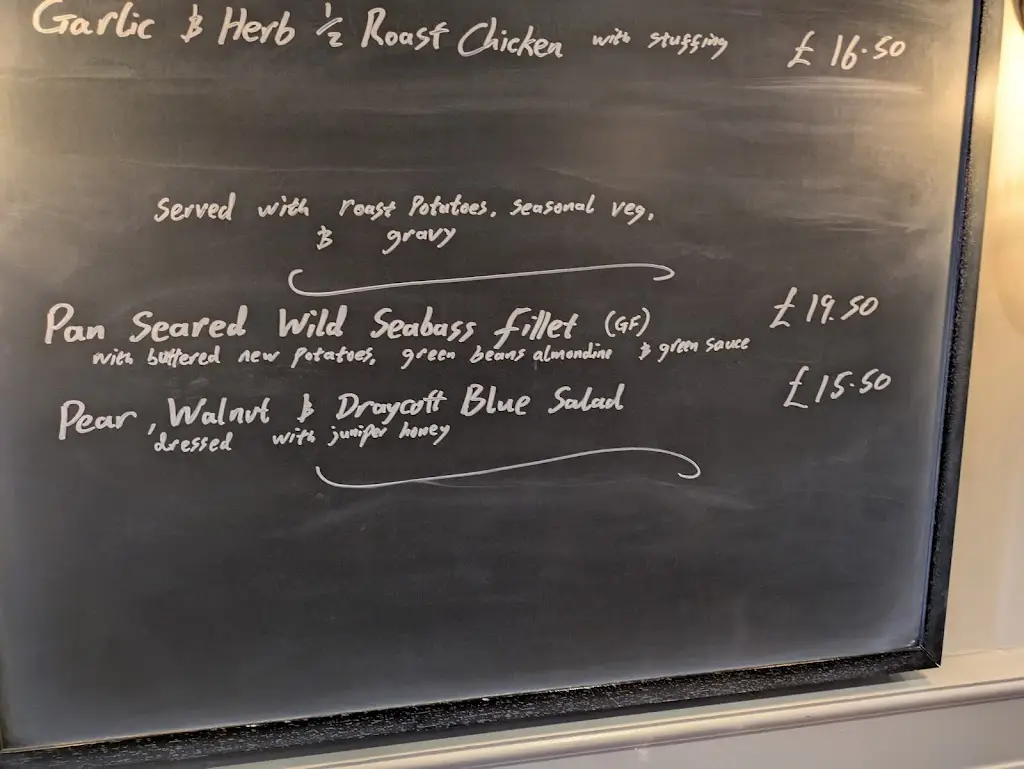 Garlic & Herb ½ Roast Chicken with stuffing £16.50
Served with roast Potatoes, seasonal veg,
& gravy
Pan Seared Wild Seabass fillet (GF) £19.50
with buttered new potatoes, green beans almondine & green sauce
Pear, Walnut & Draycott Blue Salad £15.50
dressed with juniper honey